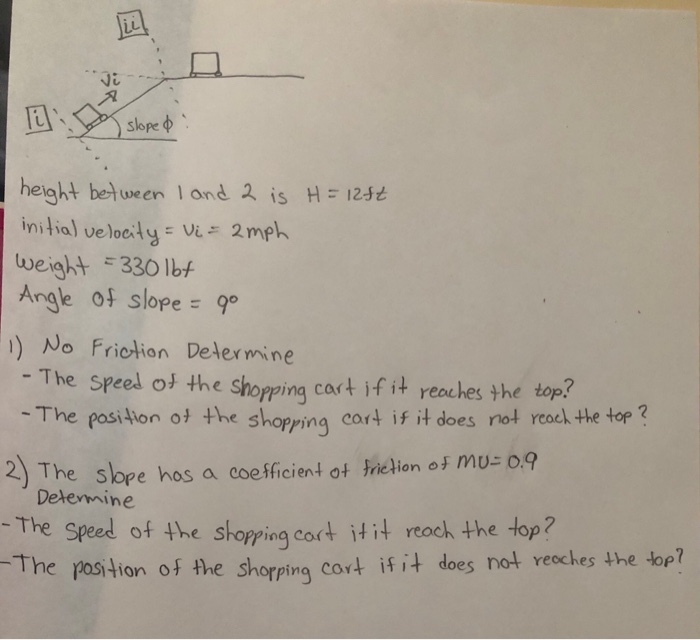 ii
Vi
i
slope ϕ
height between 1 and 2 is H = 12ft
initial velocity = Vi = 2mph
Weight = 330 lbf
Angle of slope = 9°
1) No Friction Determine
- The speed of the shopping cart if it reaches the top?
- The position of the shopping cart if it does not reach the top?
2) The slope has a coefficient of friction of MU= 0.9
Determine
- The speed of the shopping cart if it reach the top?
- The position of the shopping cart if it does not reaches the top?